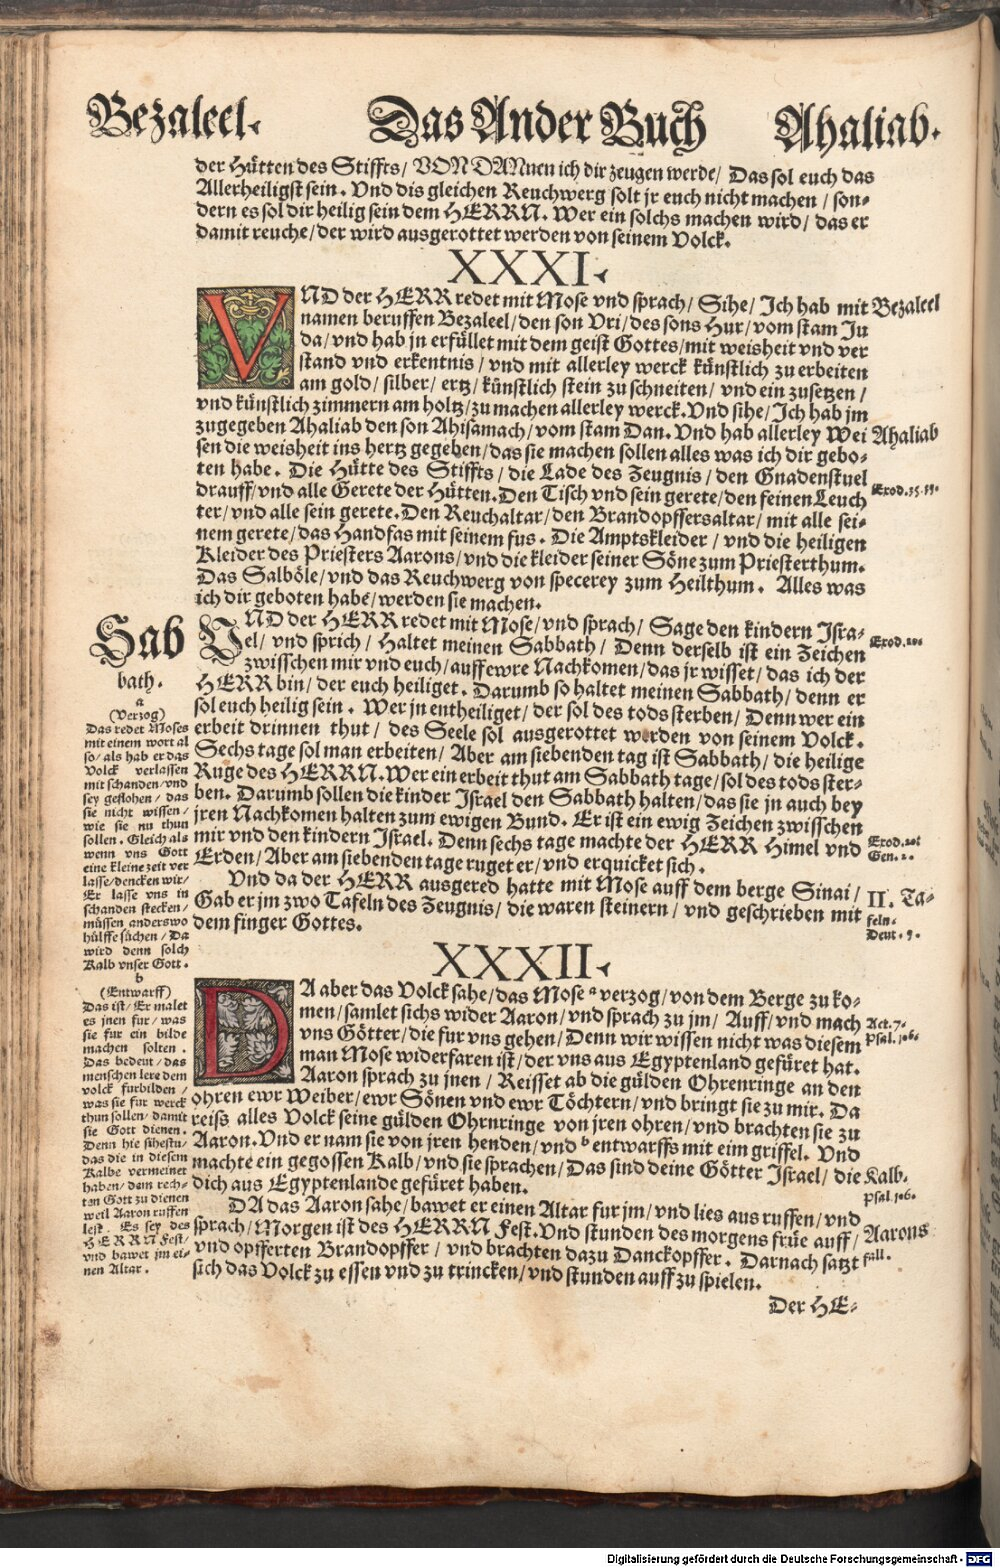 Bezaleel. Das Ander Buch Ahaliab.
der Hütten des Stiffts/ VON DANnen ich dir zeugen werde/ Das sol euch das
Allerheiligst sein. Vnd dis gleichen Reuchwerg solt jr euch nicht machen/ son-
dern es sol dir heilig sein dem HERRN. Wer ein solchs machen wird/ das er
damit reuche/ der wird ausgerottet werden von seinem Volck.
XXXI.
VND der HERR redet mit Mose vnd sprach/ Sihe/ Ich hab mit
namen beruffen Bezaleel/ den son Vri/ des sons Hur/ vom stam Ju
da/ vnd hab jn erfüllet mit dem geist Gottes/ mit weisheit vnd ver
stand vnd erkentnis/ vnd mit allerley werck künstlich zu erbeiten
am gold/ silber/ ertz/ künstlich stein zu schneiten/ vnd ein zusetzen/
vnd künstlich zimmern am holtz/ zu machen allerley werck. Vnd sihe/ Ich hab jm
zugegeben Ahaliab den son Ahisamach/ vom stam Dan. Vnd hab allerley Wei
sen die weisheit ins hertz gegeben/ das sie machen sollen alles was ich dir gebo-
ten habe. Die Hütte des Stiffts/ die Lade des Zeugnis/ den Gnadenstuel
drauff/ vnd alle Gerete der Hütten. Den Tisch vnd sein gerete/ den feinen Leuch
ter/ vnd alle sein gerete. Den Reuchaltar/ den Brandopffersaltar/ mit alle sei-
nem gerete/ das Handfas mit seinem fus. Die Amptskleider/ vnd die heiligen
Kleider des Priesters Aarons/ vnd die kleider seiner Söne zum Priesterthum.
Das Salböle/ vnd das Reuchwerg von specerey zum Heilthum. Alles was
ich dir geboten habe/ werden sie machen.
VND der HERR redet mit Mose/ vnd sprach/ Sage den kindern Isra-
el/ vnd sprich/ Haltet meinen Sabbath/ Denn derselb ist ein Zeichen
zwisschen mir vnd euch/ auff ewre Nachkomen/ das jr wisset/ das ich der
HERR bin/ der euch heiliget. Darumb so haltet meinen Sabbath/ denn er
sol euch heilig sein. Wer jn entheiliget/ der sol des tods sterben/ Denn wer ein
erbeit drinnen thut/ des Seele sol ausgerottet werden von seinem Volck.
Sechs tage sol man erbeiten/ Aber am siebenden tag ist Sabbath/ die heilige
Ruge des HERRN. Wer ein erbeit thut am Sabbath tage/ sol des tods ster-
ben. Darumb sollen die kinder Israel den Sabbath halten/ das sie jn auch bey
jren Nachkomen halten zum ewigen Bund. Er ist ein ewig Zeichen zwisschen
mir vnd den kindern Israel. Denn sechs tage machte der HERR Himel vnd
Erden/ Aber am siebenden tage ruget er/ vnd erquicket sich.
Vnd da der HERR ausgered hatte mit Mose auff dem berge Sinai/
Gab er jm zwo Tafeln des Zeugnis/ die waren steinern/ vnd geschrieben mit
dem finger Gottes.
XXXII.
DA aber das Volck sahe/ das Mose a verzog/ von dem Berge zu ko-
men/ samlet sichs wider Aaron/ vnd sprach zu jm/ Auff/ vnd mach
vns Götter/ die fur vns gehen/ Denn wir wissen nicht was diesem
man Mose widerfaren ist/ der vns aus Egyptenland gefüret hat.
Aaron sprach zu jnen/ Reisset ab die gülden Ohrenringe an den
ohren ewr Weiber/ ewr Sönen vnd ewr Töchtern/ vnd bringt sie zu mir. Da
reiss alles Volck seine gülden Ohrnringe von jren ohren/ vnd brachten sie zu
Aaron. Vnd er nam sie von jren henden/ vnd b entwarffs mit eim griffel. Vnd
machte ein gegossen Kalb/ vnd sie sprachen/ Das sind deine Götter Israel/ die
dich aus Egyptenlande gefüret haben.
DA das Aaron sahe/ bawet er einen Altar fur jm/ vnd lies aus ruffen/ vnd
sprach/ Morgen ist des HERRN Fest. Vnd stunden des morgens früe auff/
vnd opfferten Brandopffer/ vnd brachten dazu Danckopffer. Darnach satzt
sich das Volck zu essen vnd zu trincken/ vnd stunden auff zu spielen.
Der HE-
Sab
bath.
a
(Verzog)
Das redet Moses
mit einem wort al
so/ als hab er das
Volck verlassen
mit schanden/ vnd
sey geflohen/ das
sie nicht wissen/
wie sie nu thun
sollen. Gleich als
wenn vns Gott
eine kleine zeit ver
lasse/ dencken wir/
Er lasse vns in
schanden stecken/
müssen anderswo
hülffe suchen/ Da
wird denn solch
Kalb vnser Gott.
b
(Entwarff)
Das ist/ Er malet
es jnen fur/ was
sie fur ein bilde
machen solten.
Das bedeut/ das
menschen lere dem
volck furbilden/
was sie fur werck
thun sollen/ damit
sie Gott dienen.
Denn hie sihestu/
das die in diesem
Kalbe vermeinet
haben/ dem rech-
ten Gott zu dienen
weil Aaron ruffen
lest. Es sey des
HERRN Fest/
vnd bawet jm ei-
nen Altar.
Bezaleel
Ahaliab
Exod. 35.
Exod. 20.
Exod. 20.
Gen. 2.
II. Ta-
feln.
Deut. 9.
Act. 7.
Psal. 106.
Kalb.
Psal. 106.
Aarons
fall.
Digitalisierung gefördert durch die Deutsche Forschungsgemeinschaft - DFG